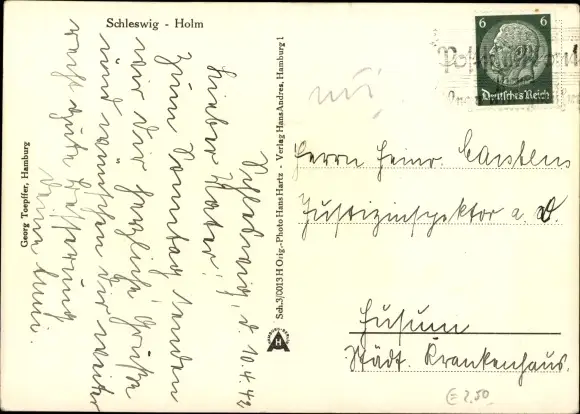 Schleswig - Holm
Schleswig, d. 10.4.42
Lieber Vater!
Zum Sonntag senden
wir Dir herzliche Grüße
und wünschen Dir weiter
recht gute Besserung
Deine
Georg Toepffer, Hamburg
Sch.3/0013 H Orig.-Photo Hans Hartz - Verlag Hans Andres, Hamburg 1
6 6
Deutsches Reich
Herrn Heinr. Carstens
Justizinspektor a. D.
Husum
Städt. Krankenhaus.
2,50